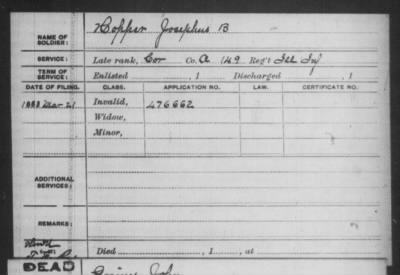 NAME OF SOLDIER: Hopper Josephus B
SERVICE: Late rank, Cor Co. A 149 Reg't Ill Inf
TERM OF SERVICE: Enlisted , 1 Discharged , 1
DATE OF FILING. CLASS. APPLICATION NO. LAW. CERTIFICATE NO.
1883 Mar 21 Invalid, 476662
Widow,
Minor,
ADDITIONAL SERVICES:
REMARKS:
Died , 1 , at
DEAD John